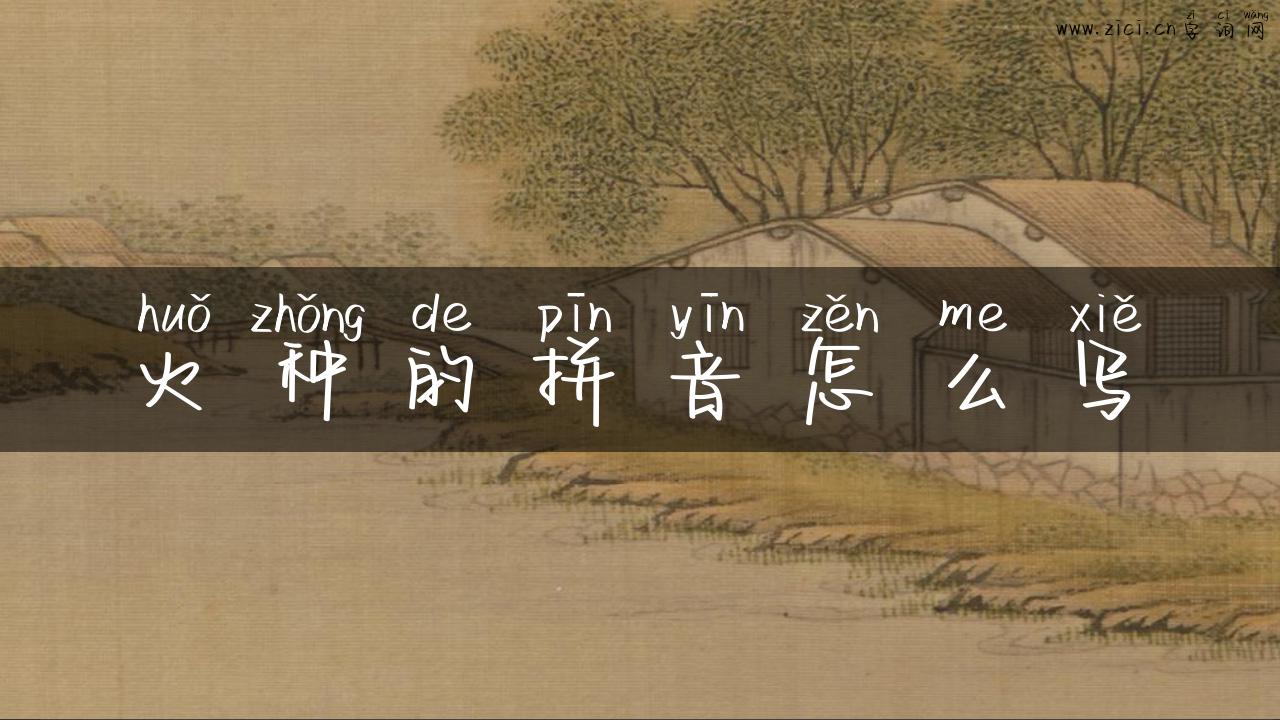 zì cí wǎng
www.zici.cn字词网
huǒ zhǒng de pīn yīn zěn me xiě
火种的拼音怎么写